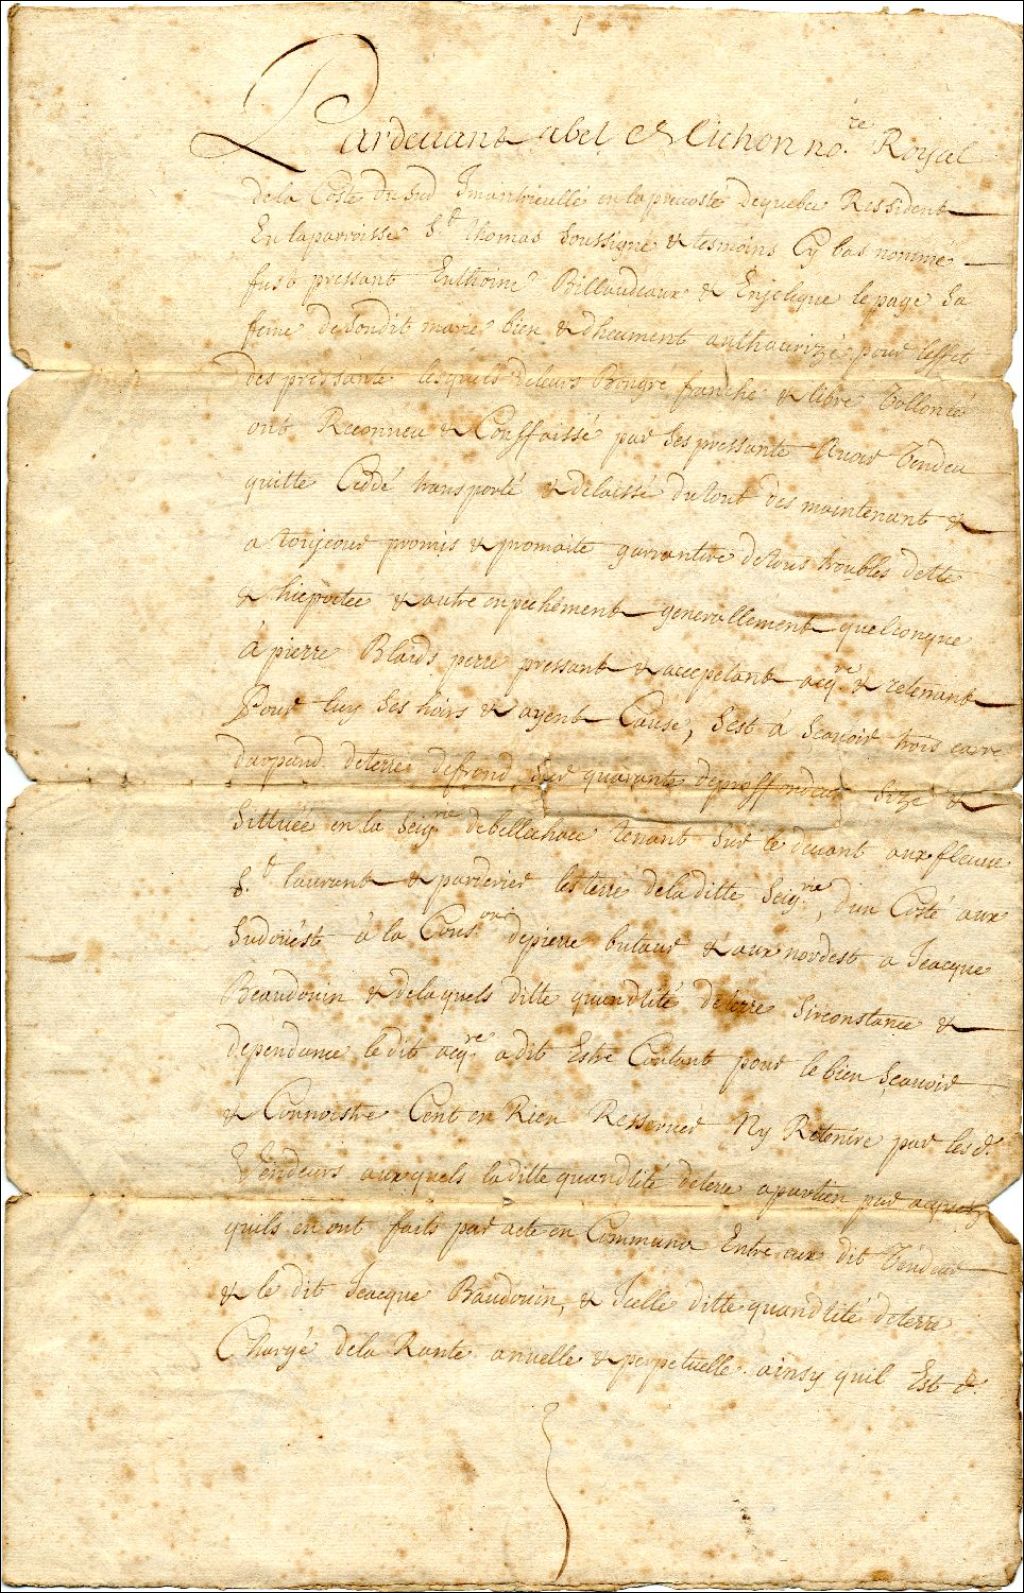 Pardevant abel Michon no.re Royal
de la Coste du Sud Immatriculle en la prevosté dequebec Ressident
En laparroisse St Thomas Soussigné & tesmoins Cy bas nommé
fust pressant Enthoine Billaudeaux & Enjelique lepage Sa
feme desondit marie bien & dheument authaurizé pour leffet
des pressante lesquels deleurs Bongré franche & libre Vollonté
ont Reconneu & Conffaissé par Ses pressante Avoir Vendeu
quitte Ceddé transporté & delaissé dutout des maintenant &
a toujeour promis & promaite garrantire detous troubles dette
& hiepotee & autre enpechement generallement quelconque
à pierre Blaids perre pressant & accepetant acq.re & retenant
Pour luy Ses hoirs & ayent Cause, Sest à Scavoir trois carre
darpand deterre defrond Sur quarante deproffondeur Size &
Sittuée en la Seig.rie debellechace tenant Sur le devant aux fleuve
St laurent & parderier les terre deladitte Seig.rie, dun Costé aux
Sudouest à la Cons.on depierre butaud & aux nordest a Jeacque
Beaudouin & delaquels ditte quandtité deterre Sirconstance &
dependance ledit acq.re adit Estre Contant pour le bien Scavoir
& Connoistre Cent en Rien Resserver Ny Retenire par les d.
Vendeurs auxquels laditte quandtité deterre apartien par acquest
quils en ont faits par acte en Commune Entre eux dit Vendeur
& le dit Jeacque Baudouin, & Icelle ditte quandtité deterre
Chargé dela Rante annuelle & perpetuelle ainsy quil Est d.